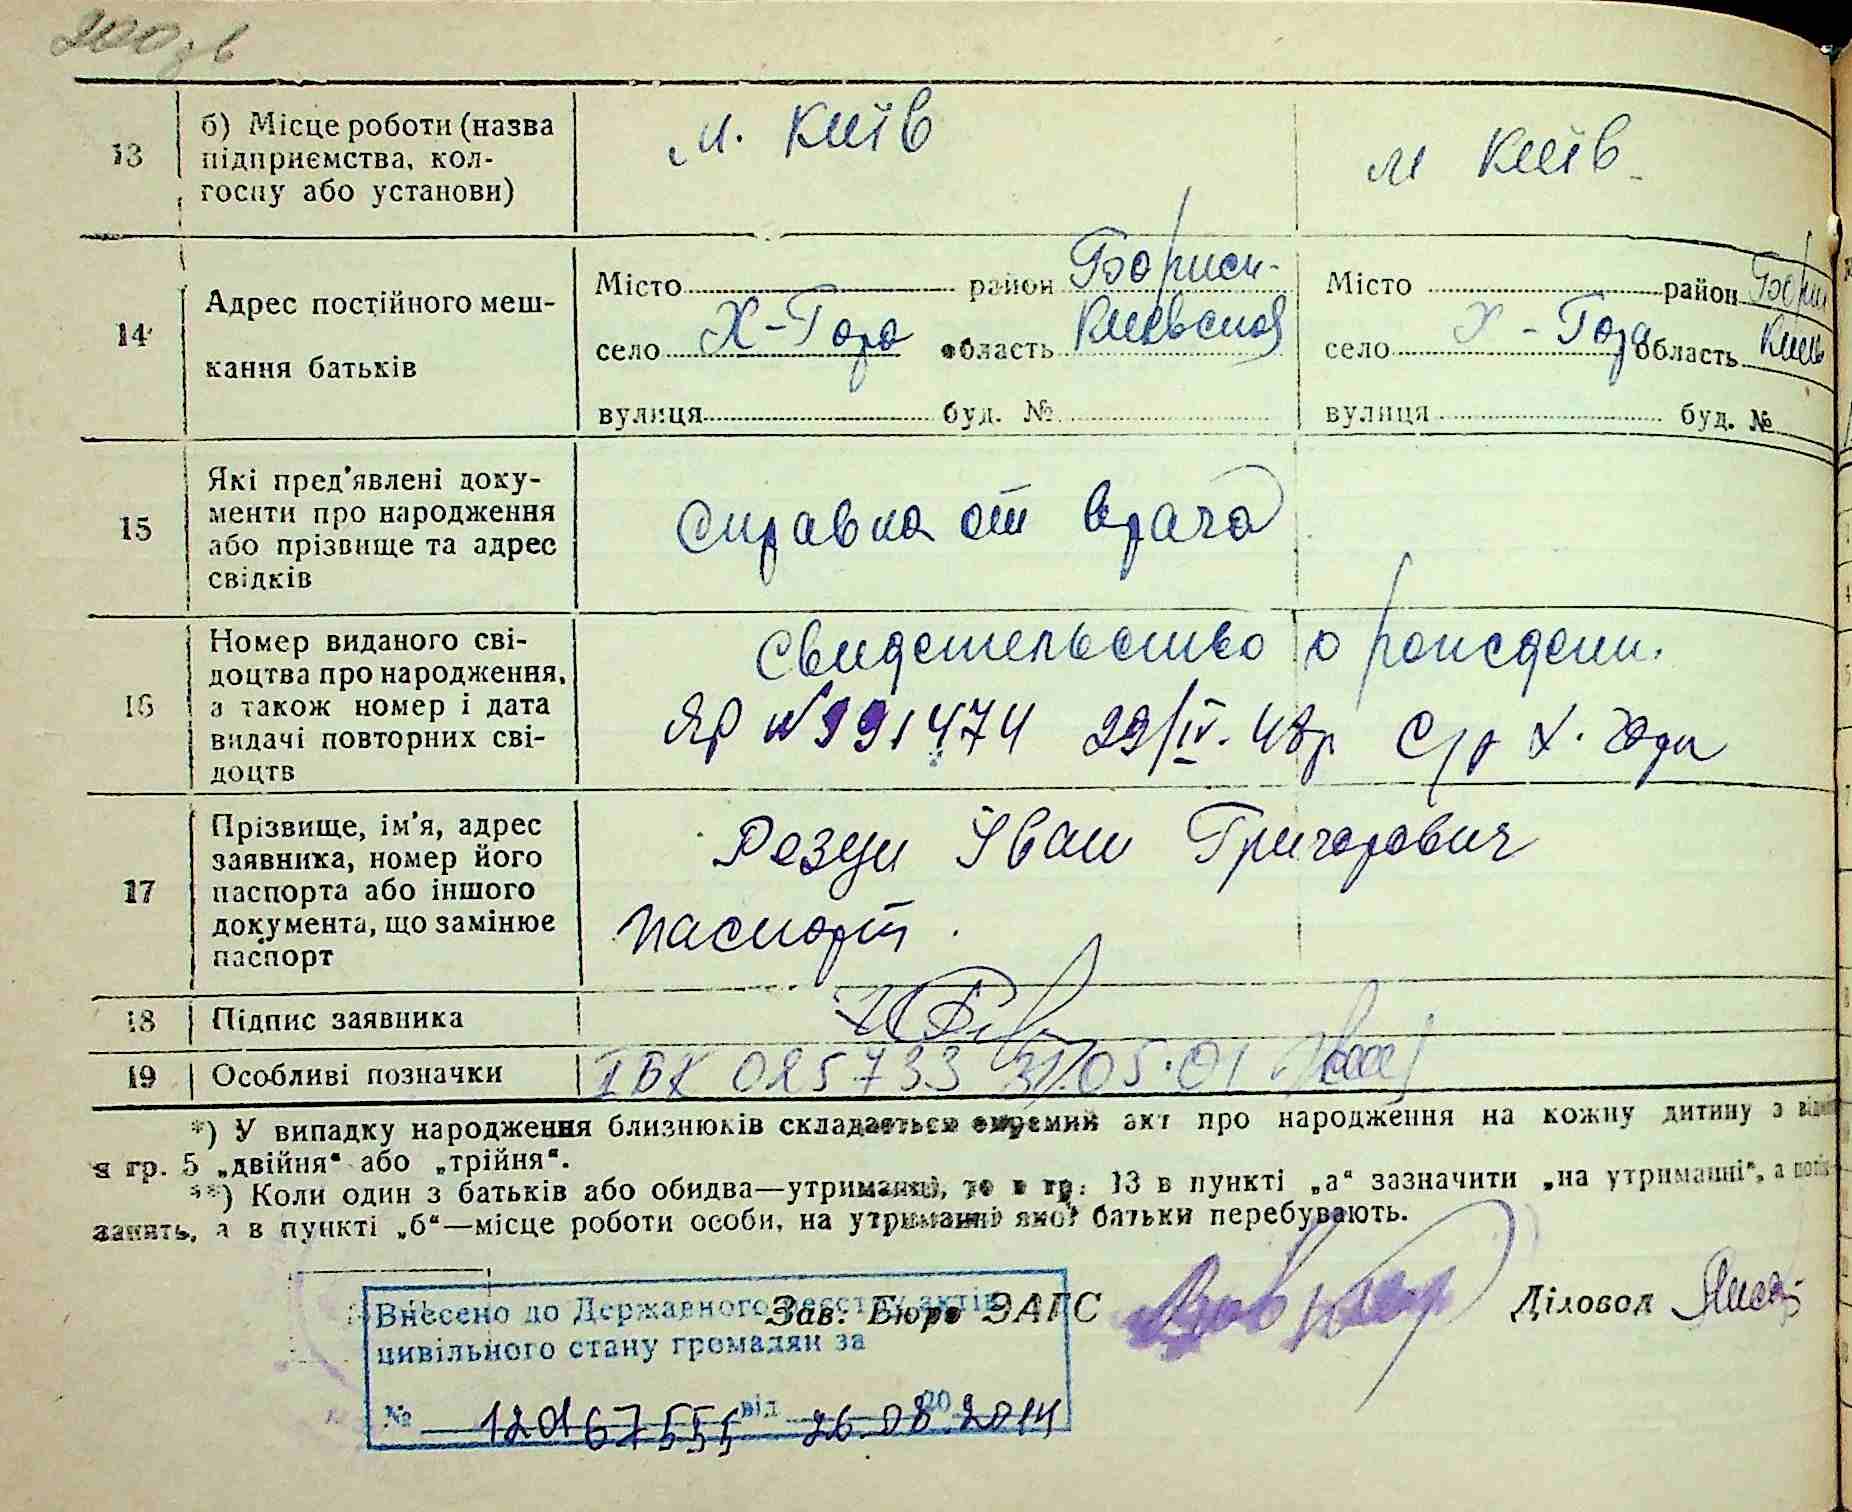 200 зв
13
б) Місце роботи (назва
підприємства, кол-
госпу або установи)
м. Київ
м Київ
14
Адрес постійного меш-
кання батьків
Місто район Борисп-
село Х-Гора область Киевская
вулиця буд. №
Місто район Борисп
село Х-Гора область Киев
вулиця буд. №
15
Які пред'явлені доку-
менти про народження
або прізвище та адрес
свідків
Справка от врача
16
Номер виданого сві-
доцтва про народження,
а також номер і дата
видачі повторних сві-
доцтв
Свидетельство о рождени.
ЯР №991474 29/IV. 48р С/р Х. Гори
17
Прізвище, ім'я, адрес
заявника, номер його
паспорта або іншого
документа, що замінює
паспорт
Іван Григорович
паспорт.
18
Підпис заявника
19
Особливі позначки
ІБК 025733 31.05.01
*) У випадку народження близнюків складається окремий акт про народження на кожну дитину з
в гр. 5 „двійня“ або „трійня“.
**) Коли один з батьків або обидва—утриманці, то в гр. 13 в пункті „а“ зазначити „на утриманні“, а
занять, а в пункті „б“—місце роботи особи, на утриманні якої батьки перебувають.
Зав. Бюро ЗАГС
Діловод
Внесено до Державного реєстру актів
цивільного стану громадян за
№ 12016755 від 26.08.2014